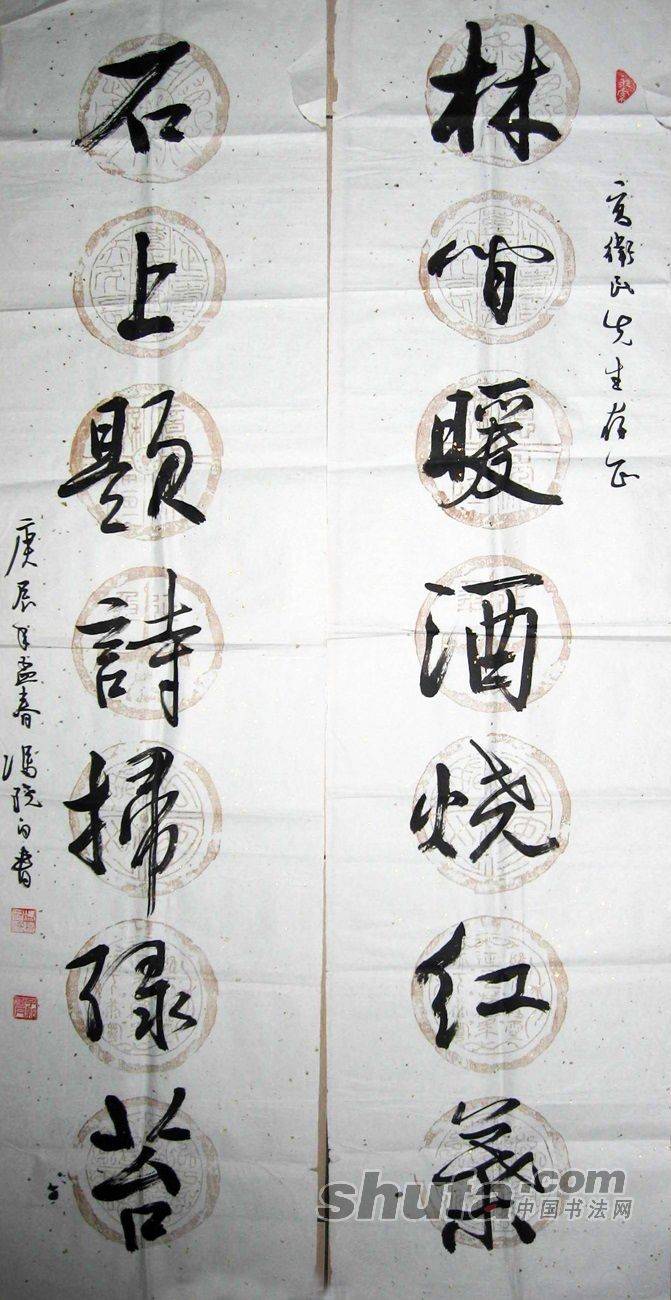 林间暖酒烧红葉
石上题詩掃绿苔
高衛民先生存正
庚辰年孟春 馮院白書
shufa.com
中国书法网